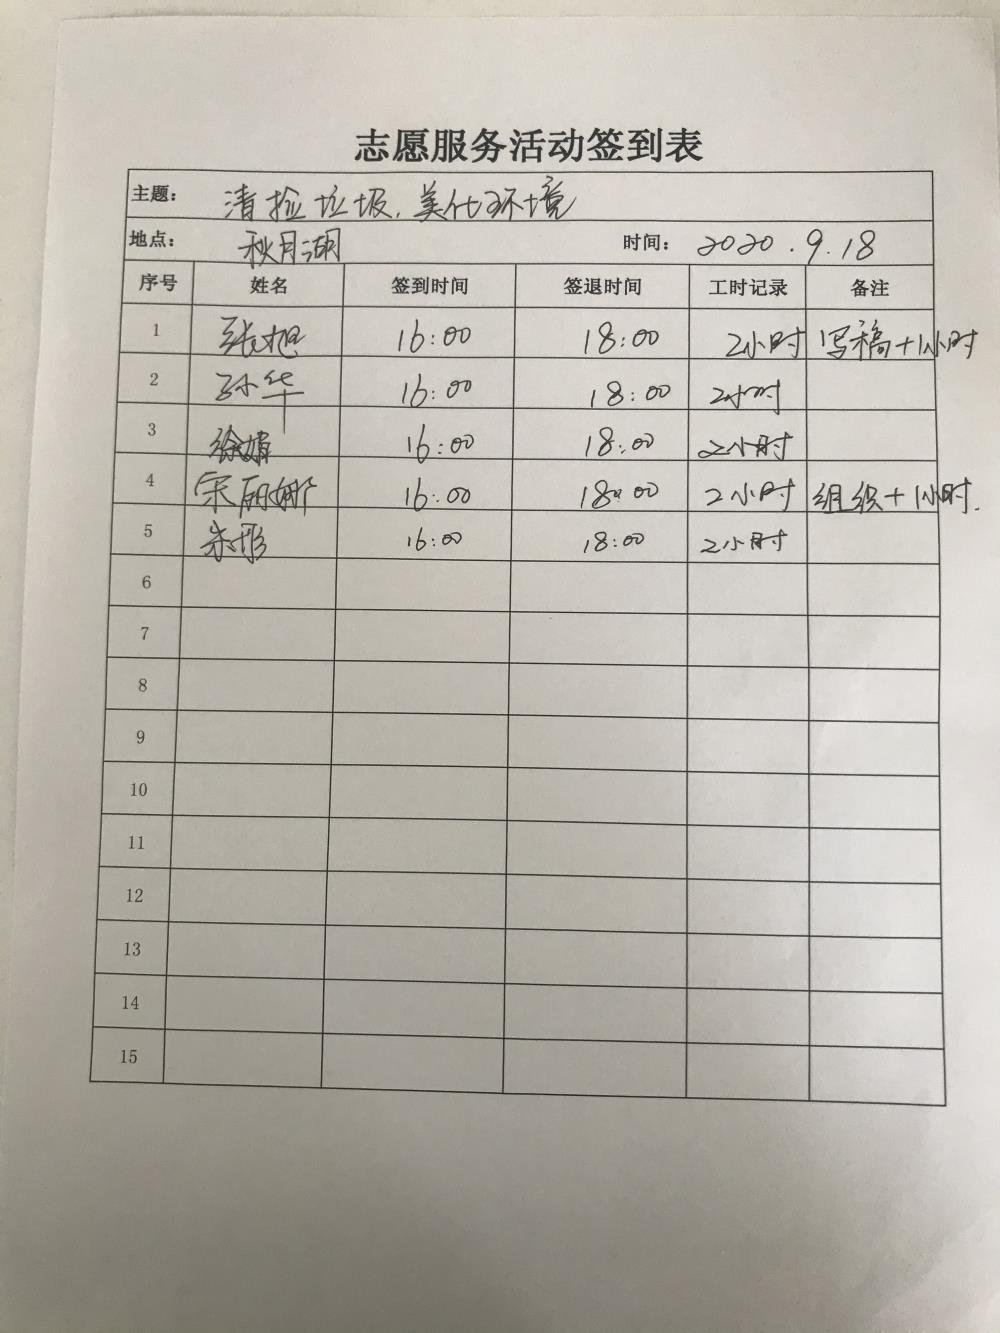 志愿服务活动签到表
主题： 清捡垃圾,美化环境
地点： 秋月湖 时间： 2020.9.18
序号 姓名 签到时间 签退时间 工时记录 备注
1 张旭 16:00 18:00 2小时 写稿+1小时
2 孙华 16:00 18:00 2小时
3 徐婧 16:00 18:00 2小时
4 宋丽娜 16:00 18:00 2小时 组织+1小时.
5 朱彤 16:00 18:00 2小时
6
7
8
9
10
11
12
13
14
15